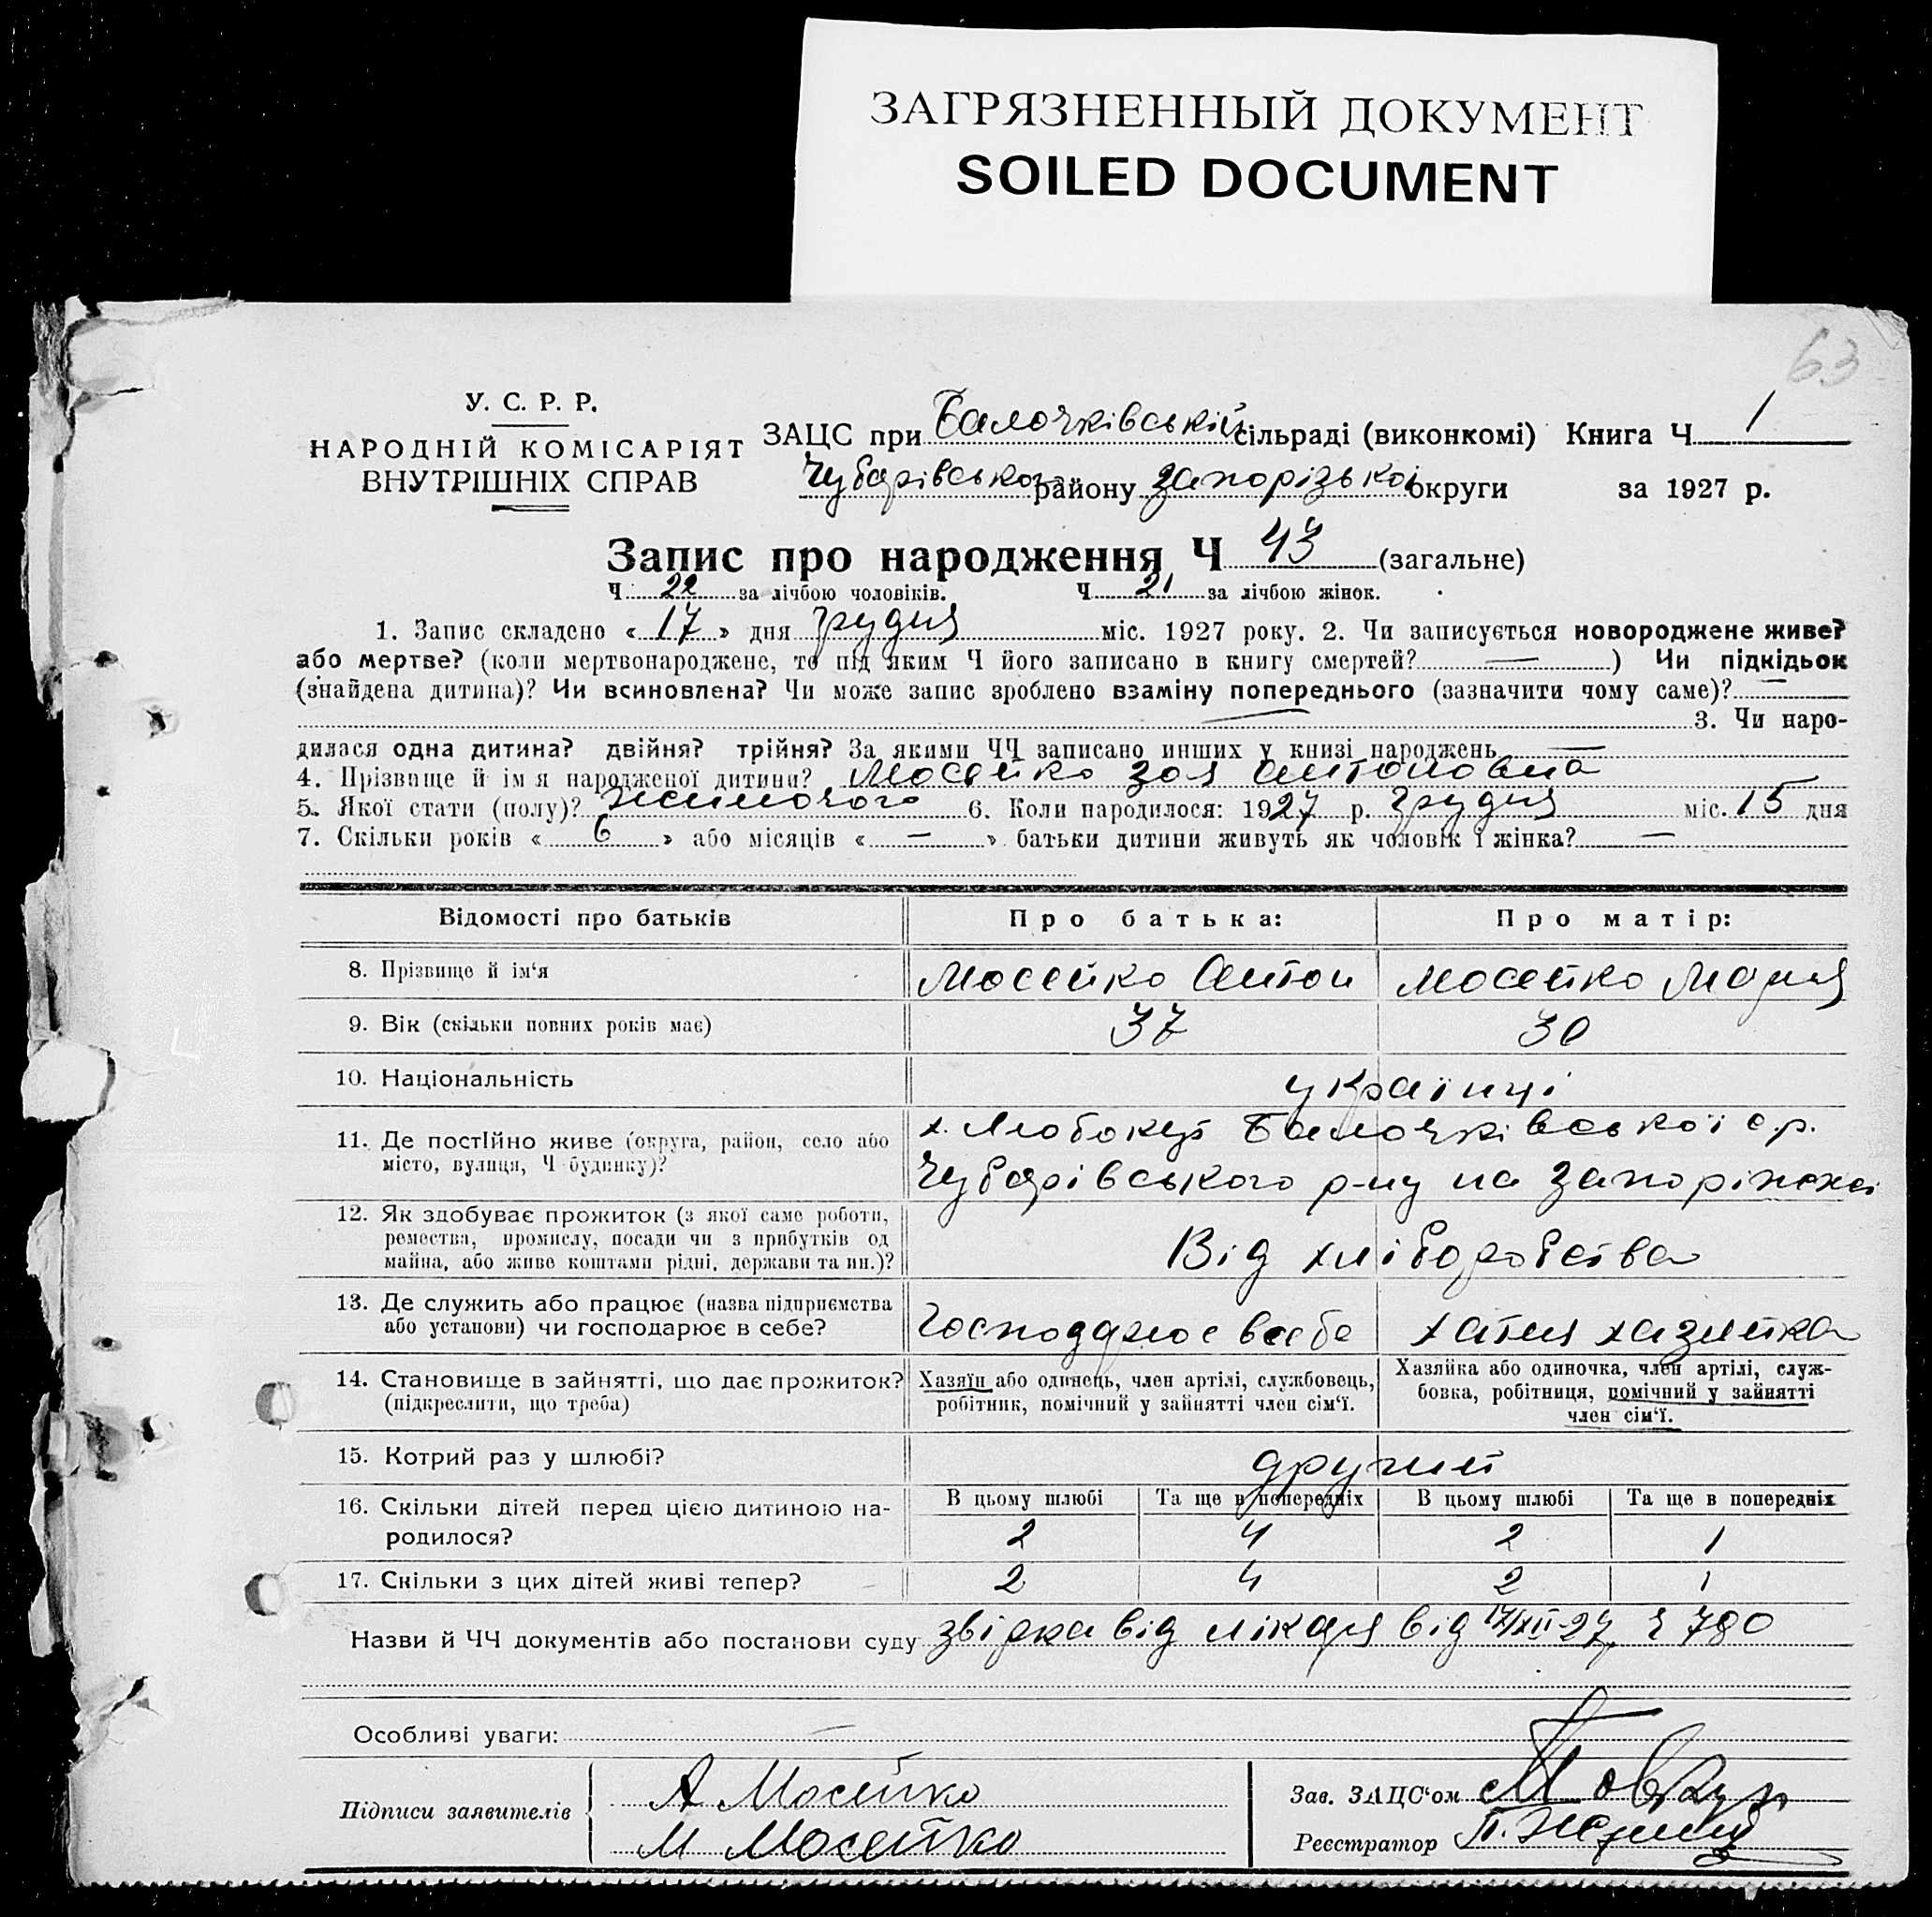 ЗАГРЯЗНЕННЫЙ ДОКУМЕНТ
SOILED DOCUMENT
63
У. С. Р. Р.
НАРОДНІЙ КОМІСАРІЯТ
ВНУТРІШНІХ СПРАВ
ЗАЦС при Балочківській сільраді (виконкомі) Книга Ч 1
Чубарівського району Запорізької округи за 1927 р.
Запис про народження Ч 43 (загальне)
Ч 22 за лічбою чоловіків. Ч 21 за лічбою жінок.
1. Запис складено « 17 » дня грудня міс. 1927 року. 2. Чи записується новороджене живе?
або мертве? (коли мертвонароджене, то під яким Ч його записано в книгу смертей? — ) Чи підкідьок
(знайдена дитина)? Чи всиновлена? Чи може запис зроблено взаміну попереднього (зазначити чому саме)? —
— 3. Чи наро-
дилася одна дитина? двійня? трійня? За якими ЧЧ записано инших у книзі народжень —
4. Прізвище й ім я народженої дитини? Мосейко Зоя Антоновна
5. Якої стати (полу)? жиночого 6. Коли народилося: 1927 р. грудня міс. 15 дня
7. Скільки років « 6 » або місяців « — » батьки дитини живуть як чоловік і жінка? —
Відомості про батьків Про батька: Про матір:
8. Прізвище й ім‘я Мосейко Антон Мосейко Мария
9. Вік (скільки повних років має) 37 30
10. Національність українці
11. Де постійно живе (округа, район, село або
місто, вулиця, Ч будинку)?
х. Балочківської с.р.
Чубарівського р-ну на
12. Як здобуває прожиток (з якої саме роботи,
ремества, промислу, посади чи з прибутків од
майна, або живе коштами рідні, держави та ин.)?
Від хліборобства
13. Де служить або працює (назва підприємства
або установи) чи господарює в себе?
Господарює всебе хатня хазяйка
14. Становище в зайнятті, що дає прожиток?
(підкреслити, що треба)
Хазяїн або одинець, член артілі, службовець,
робітник, помічний у зайнятті член сім‘ї.
Хазяйка або одиночка, член артілі, служ-
бовка, робітниця, помічний у зайнятті
член сім‘ї.
15. Котрий раз у шлюбі? другий
В цьому шлюбі Та ще в попередніх В цьому шлюбі Та ще в попередніх
16. Скільки дітей перед цією дитиною на-
родилося?
2 4 2 1
17. Скільки з цих дітей живі тепер? 2 4 2 1
Назви й ЧЧ документів або постанови суду звірка від лікаря від 17/XII-27 Ч 780
Особливі уваги: —
Підписи заявителів
А Мосейко
М Мосейко
Зав. ЗАЦС‘ом
Реєстратор